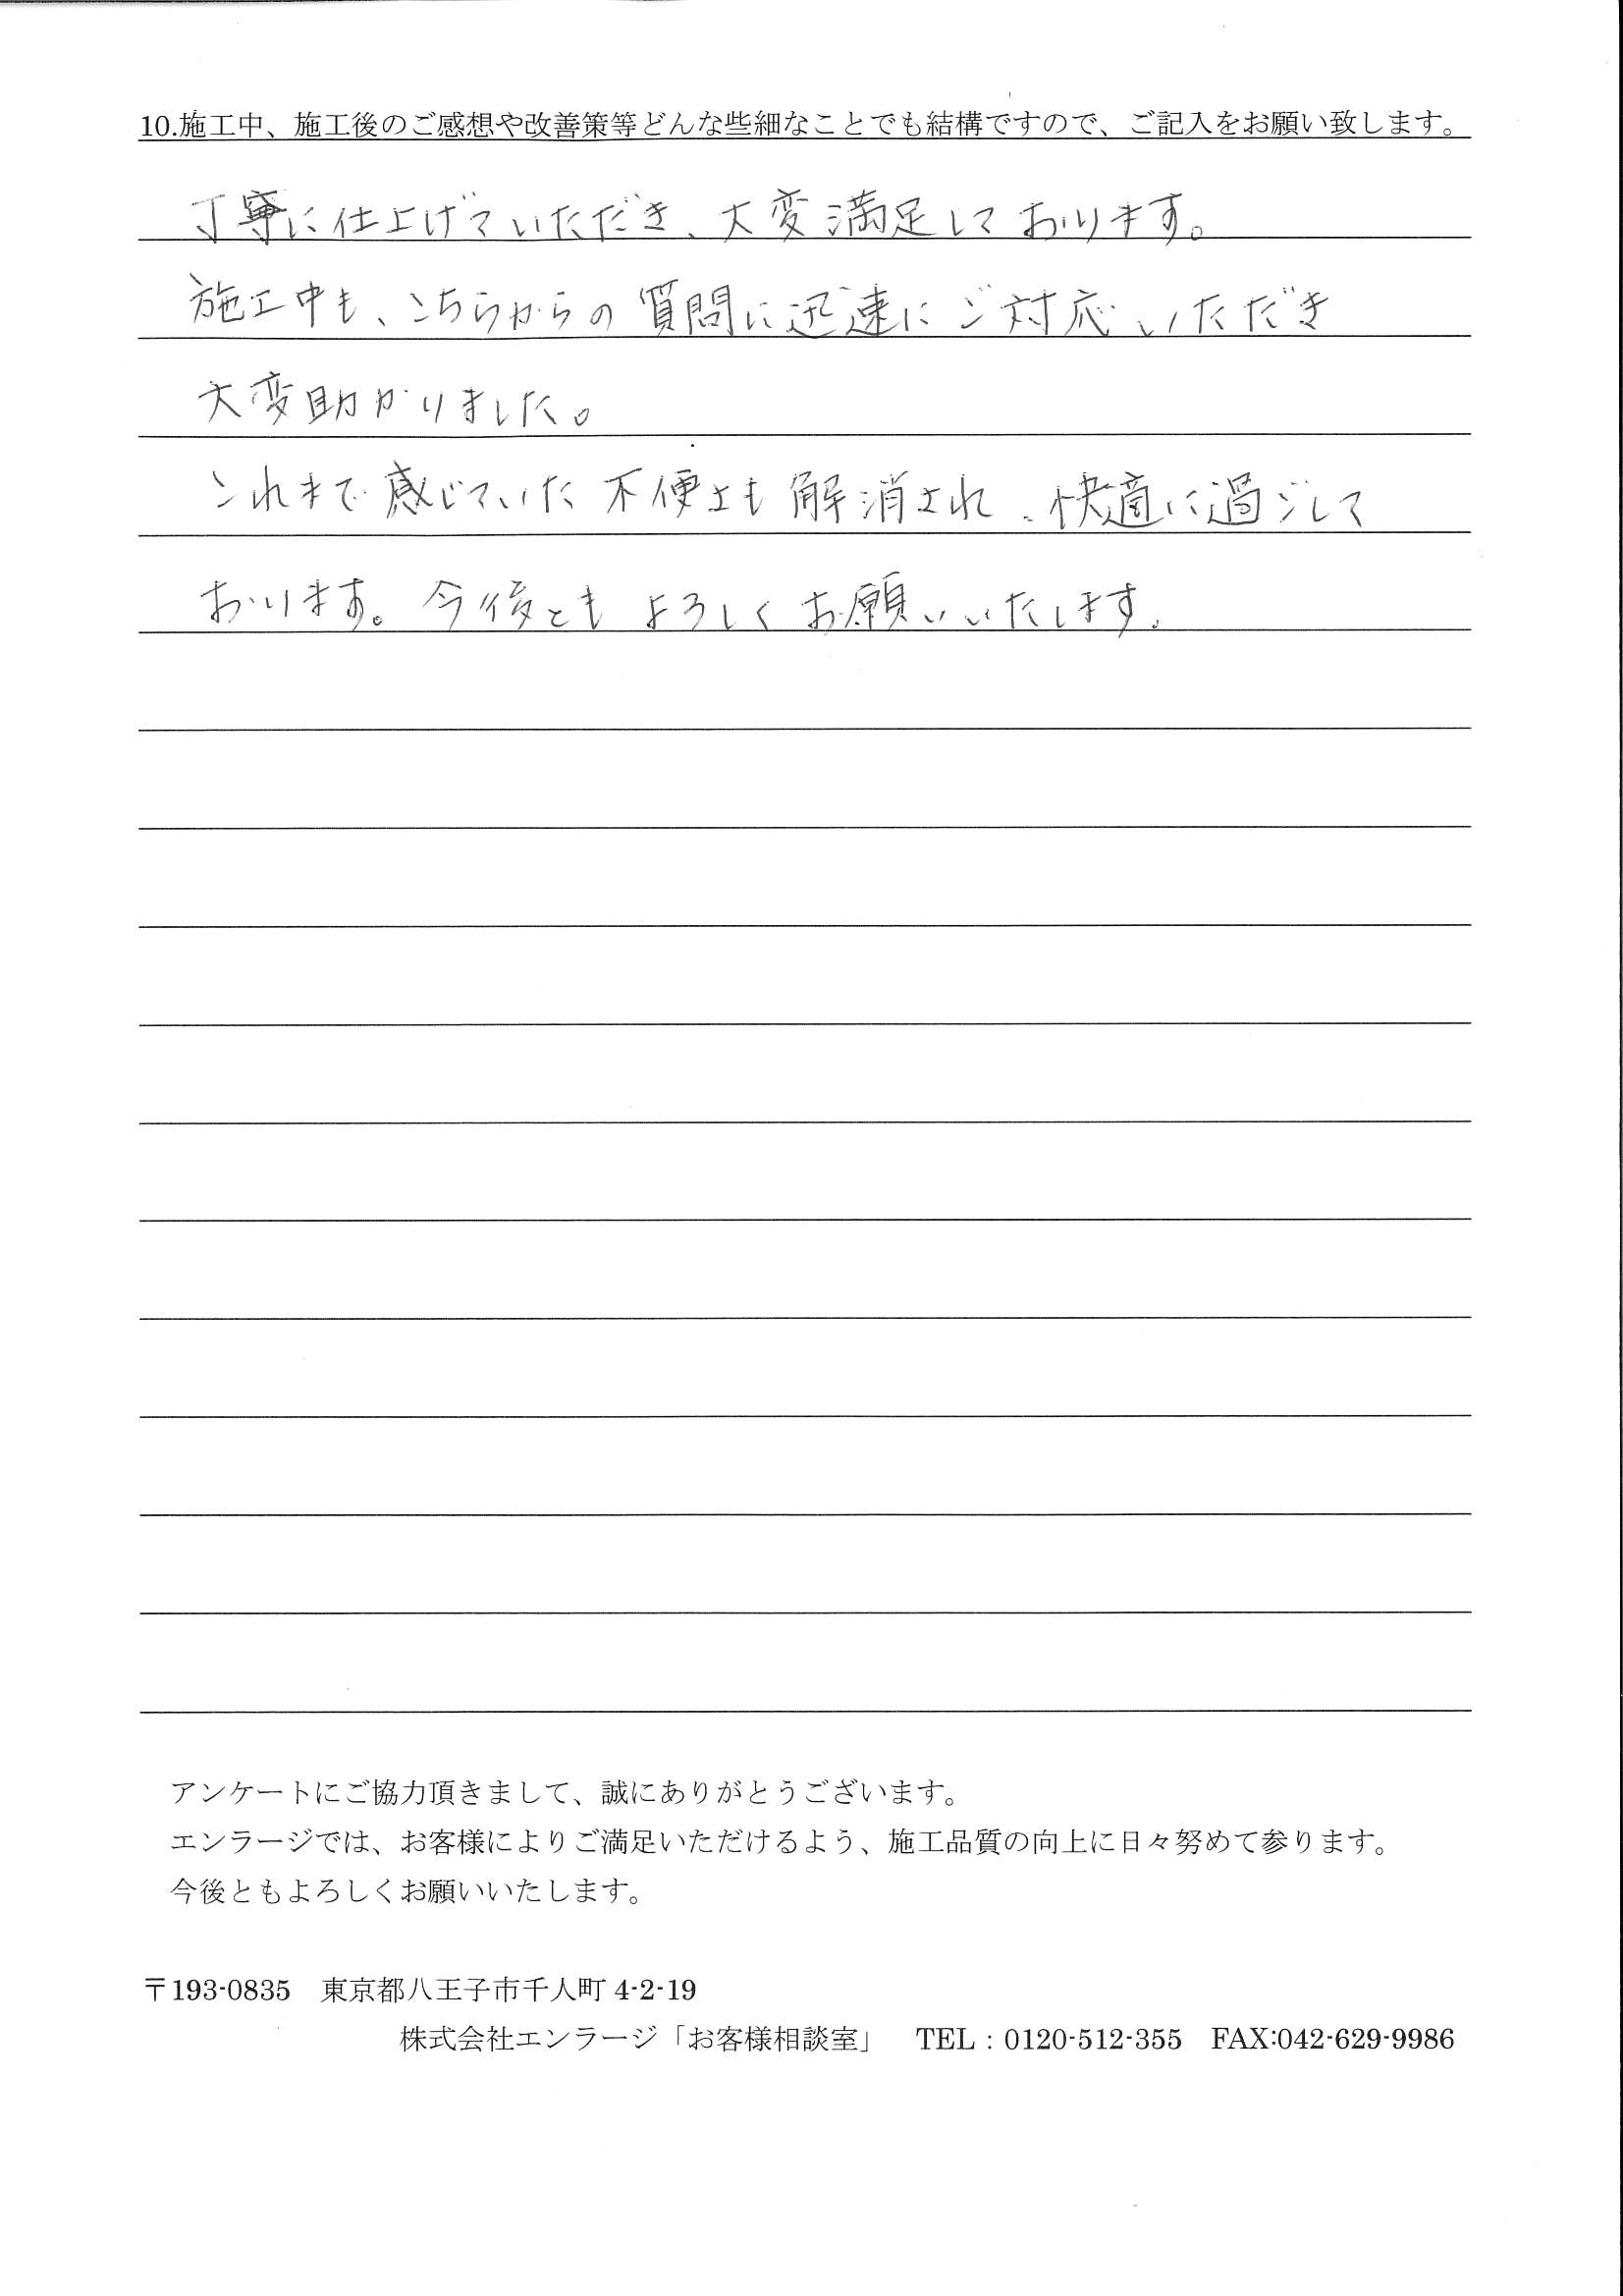 10.施工中、施工後のご感想や改善策等どんな些細なことでも結構ですので、ご記入をお願い致します。
丁寧に仕上げていただき、大変満足しております。
施工中も、こちらからの質問に迅速にご対応いただき
大変助かりました。
これまで感じていた不便さも解消され、快適に過ごして
おります。今後ともよろしくお願いいたします。
アンケートにご協力頂きまして、誠にありがとうございます。
エンラージでは、お客様によりご満足いただけるよう、施工品質の向上に日々努めて参ります。
今後ともよろしくお願いいたします。
〒193-0835　東京都八王子市千人町 4-2-19
株式会社エンラージ「お客様相談室」　TEL：0120-512-355　FAX:042-629-9986